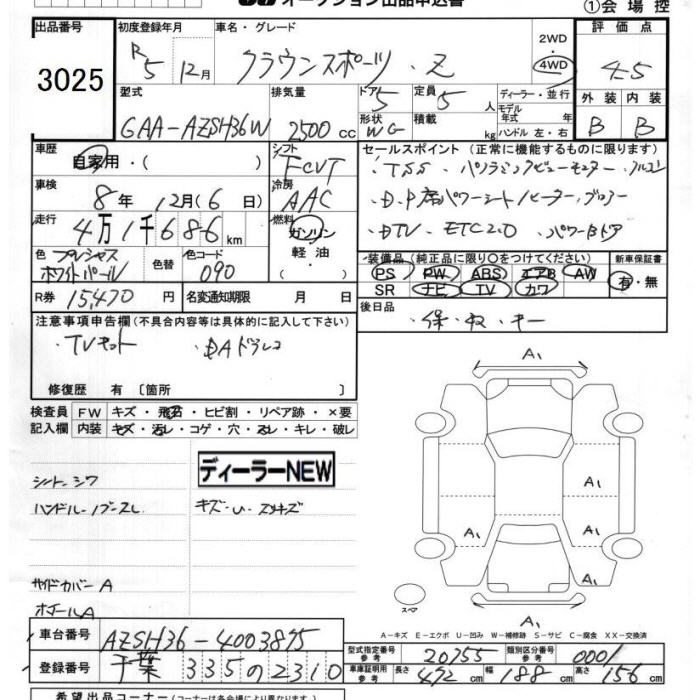 オークション出品申込書
①会場控
出品番号
3025
初度登録年月
R5 12月
車名・グレード
クラウンスポーツ・Z
2WD
・
4WD
評価点
4.5
外装 内装
B B
型式
6AA-AZSH36W
排気量
2500 cc
ドア 5
形状 WG
定員 5 人
積載 kg
ディーラー・並行
モデル
年式 年
ハンドル 左・右
車歴
自家用・( )
シフト
FCVT
車検
8年 12月(6日)
冷房
AAC
走行
4万1千686km
燃料
ガソリン
軽油
・( )
色
プレシャス
ホワイトパール
色替
色コード
090
R券 15,470 円
名変通知期限 月 日
セールスポイント(正常に機能するものに限ります)
・TSS ・パノラミックビューモニター・フルコン
・D.P席パワーシート/ヒーター・ブロアー
・DTV ・ETC2.0 ・パワーBドア
装備品(純正品に限り○をつけてください)
PS PW ABS エアB AW
SR ナビ TV カワ
新車保証書
有・無
後日品
・保・取・キー
注意事項申告欄(不具合内容等は具体的に記入して下さい)
・TVキット ・DAドラレコ
修復歴 有 〔箇所 〕
検査員
記入欄
FW キズ・飛石・ヒビ割・リペア跡・×要
内装 キズ・汚レ・コゲ・穴・スレ・キレ・破レ
ディーラーNEW
シート・シワ
ハンドル・ノブ・スレ
キズ・U・スリキズ
サイドカバーA
ホイールA
A1
A1
A1
A1
A1
スペア
A-キズ E-エクボ U-凹み W-補修跡 S-サビ C-腐食 XX-交換済
車台番号
AZSH36-4003875
登録番号
千葉 335 の 2310
型式指定番号
参考
20755
類別区分番号
参考
0001
車庫証明用
参考
長さ 472 cm
幅 188 cm
高さ 156 cm
希望出品コーナー(コーナーは各会場により異なります)